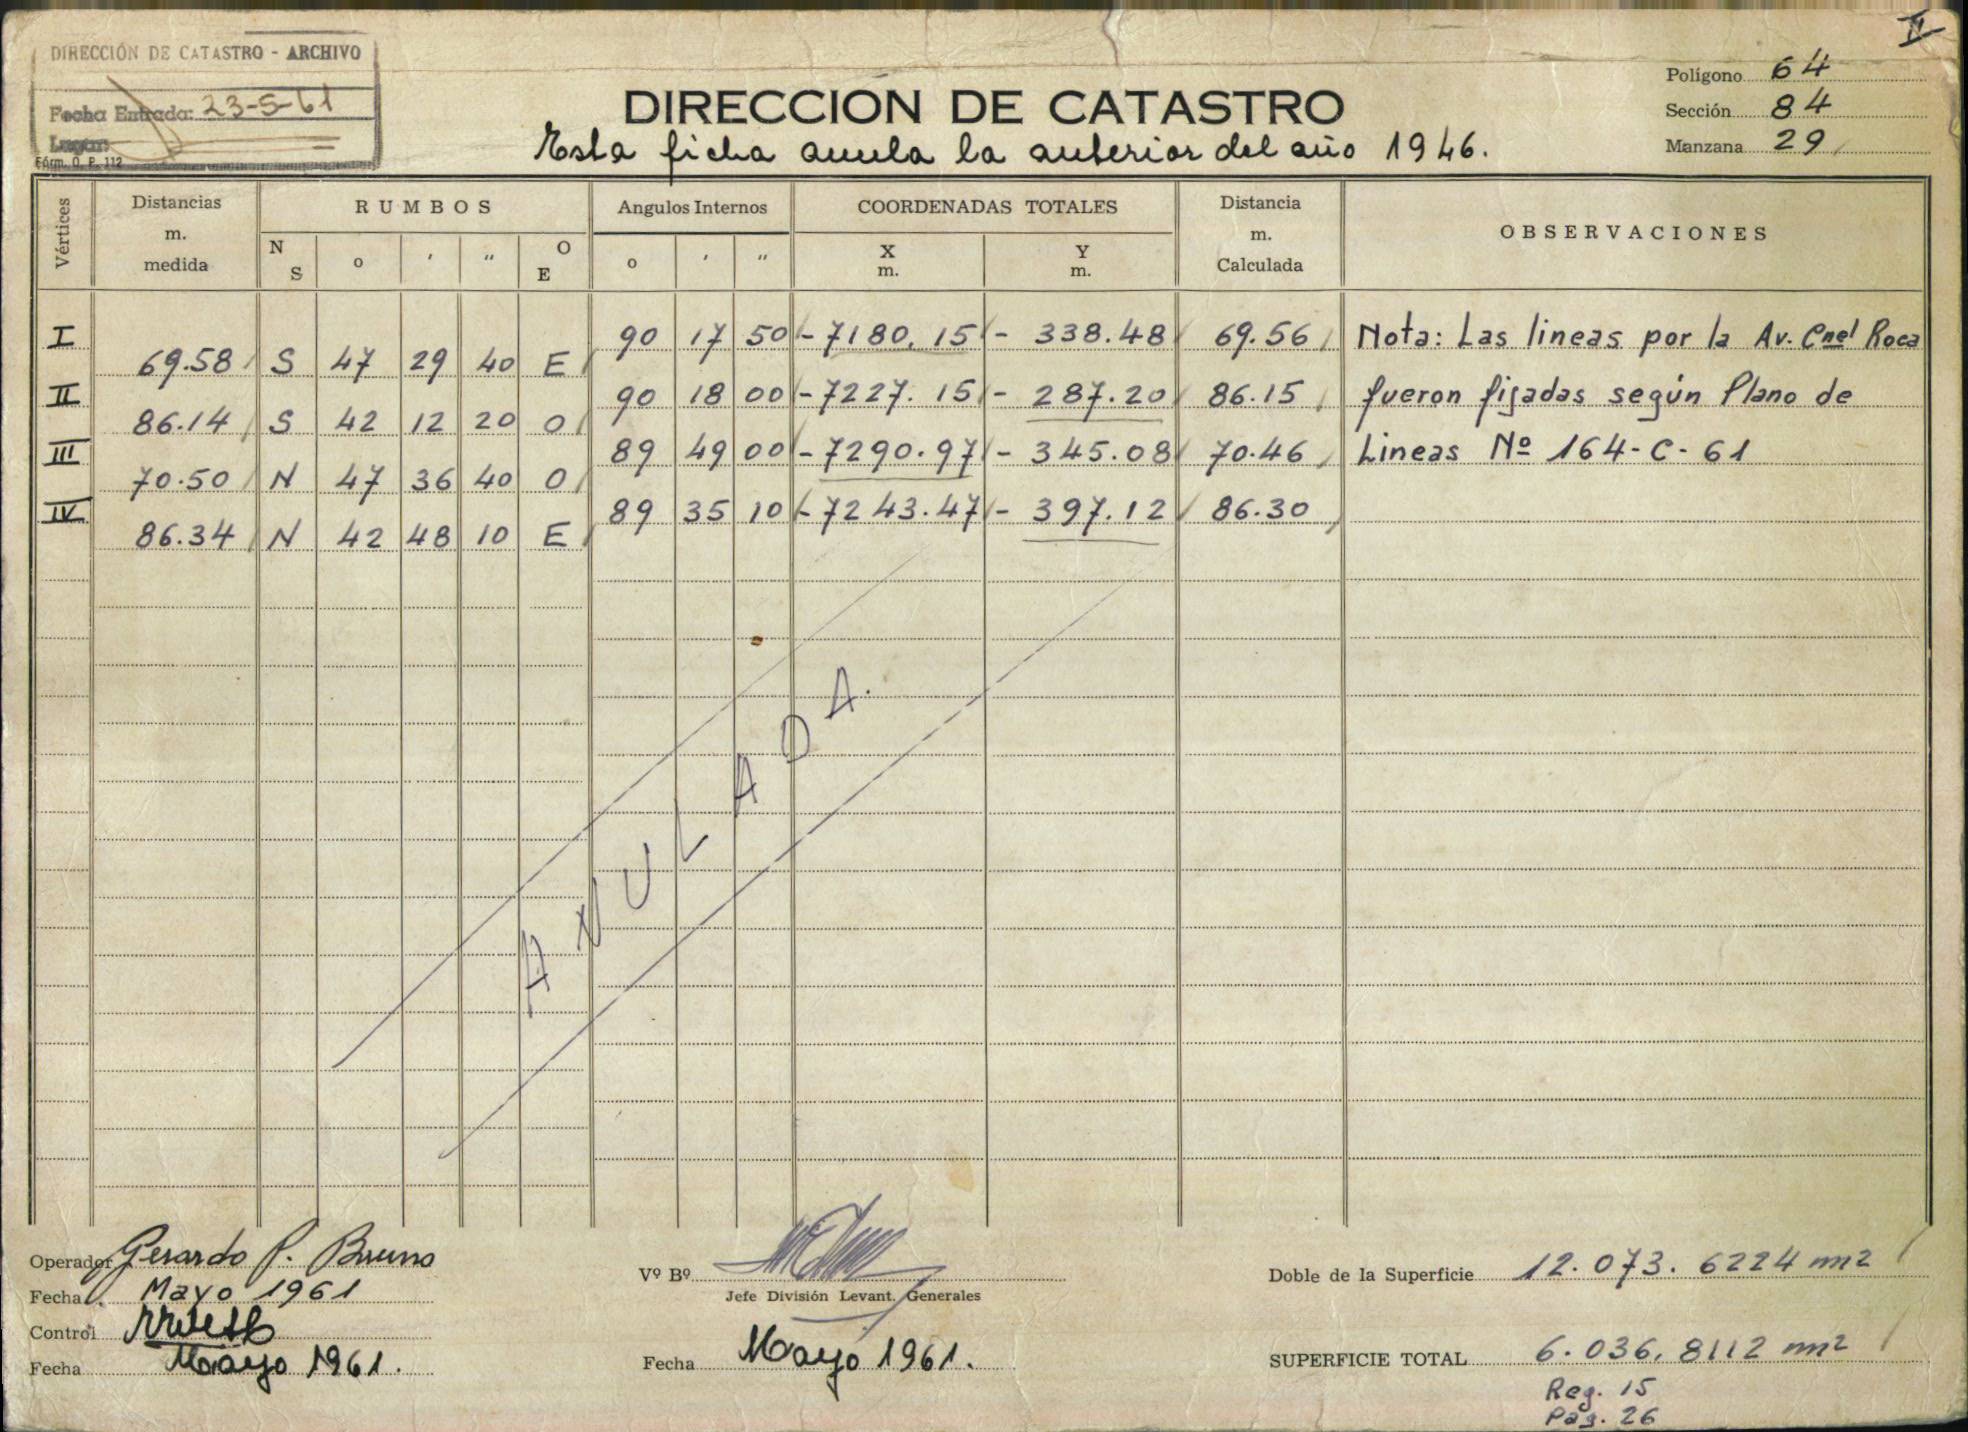 II
DIRECCIÓN DE CATASTRO - ARCHIVO
Fecha Entrada: 23-5-61
Lugar:
Fórm. O. P. 112
DIRECCIÓN DE CATASTRO
Esta ficha anula la anterior del año 1946.
Polígono 64
Sección 84
Manzana 29
Vértices
Distancias m. medida
RUMBOS
N S o ' " O E
Angulos Internos
o ' "
COORDENADAS TOTALES
X m. Y m.
Distancia m. Calculada
OBSERVACIONES
I 90 17 50 -7180.15 - 338.48 69.56 Nota: Las lineas por la Av. Cnel Roca
69.58 S 47 29 40 E
II 90 18 00 -7227.15 - 287.20 86.15 fueron fijadas según Plano de
86.14 S 42 12 20 O
III 89 49 00 -7290.97 - 345.08 70.46 Lineas Nº 164-C-61
70.50 N 47 36 40 O
IV 89 35 10 -7243.47 - 397.12 86.30
86.34 N 42 48 10 E
ANULADA.
Operador Gerardo P. Bruno
Fecha Mayo 1961
Control
Fecha Mayo 1961.
Vº Bº
Jefe División Levant. Generales
Fecha Mayo 1961.
Doble de la Superficie 12.073.6224 m2
SUPERFICIE TOTAL 6.036,8112 m2
Reg. 15
Pág. 26